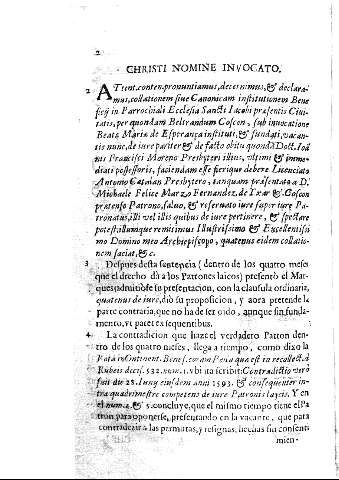 2
CHRISTI NOMINE INVOCATO.
2 ATtent. conten. pronuntiamus, decernimus, & declara-
mus, collationem sive Canonicam institutionem Bene
ficij in Parrochiali Ecclesia Sancti Iacobi præsentis Civi-
tatis, per quondam Beltrandum Coscon, sub invocatione
Beatæ Mariæ de Esperança instituti, & fundati, vacan-
tis nunc, de iure pariter & de facto obitu quondã Doct. Ioã
nis Francisci Moreno Presbyteri illius, vltimi & imme-
diati possessoris, faciendam esse fierique debere Licenciato
Antonio Catalan Presbytero, tanquam præsentato a D.
Michaele Felice Marzo Fernandez, de Ixar & Coscon
prætenso Patrono, salvo, & reservato iure super iure Pa-
tronatus, illi vel illis quibus de iure pertinere, & spectare
potest: illumque remitimus Illustrissimo & Excellentissi
mo Domino meo Archiepiscopo, quatenus eidem collatio-
nem faciat, &c.
3 Despues desta sentencia (dentro de los quatro meses
que el drecho dà a los Patrones laicos) presentò el Mar-
ques admitòse su presentacion, con la clausula ordinaria,
quatenus de iure, diò su proposicion, y aora pretende la
parte contraria, que no ha de ser oido, aunque sin funda-
mento, vt patet ex sequentibus.
4 La contradicion que haze el verdadero Patron den-
tro de los quatro meses, llega a tiempo, como dixo la
Rota in Ontinent. Benef. coram Penia qua est in recollect. d
Rubeis decis. 532. num. 1. vbi ita scribit: Contradictio verò
fuit die 28. Iunÿ eiusdem anni 1593. & consequenter in-
tra quadrimestre competens de iure Patronis laycis. Y en
el num. 4. & 5. concluye, que el mismo tiempo tiene el Pa
tron para oponerse, presentando en la vacante, que para
contradezir a las permutas, y resignas, hechas sin consenti
mien-